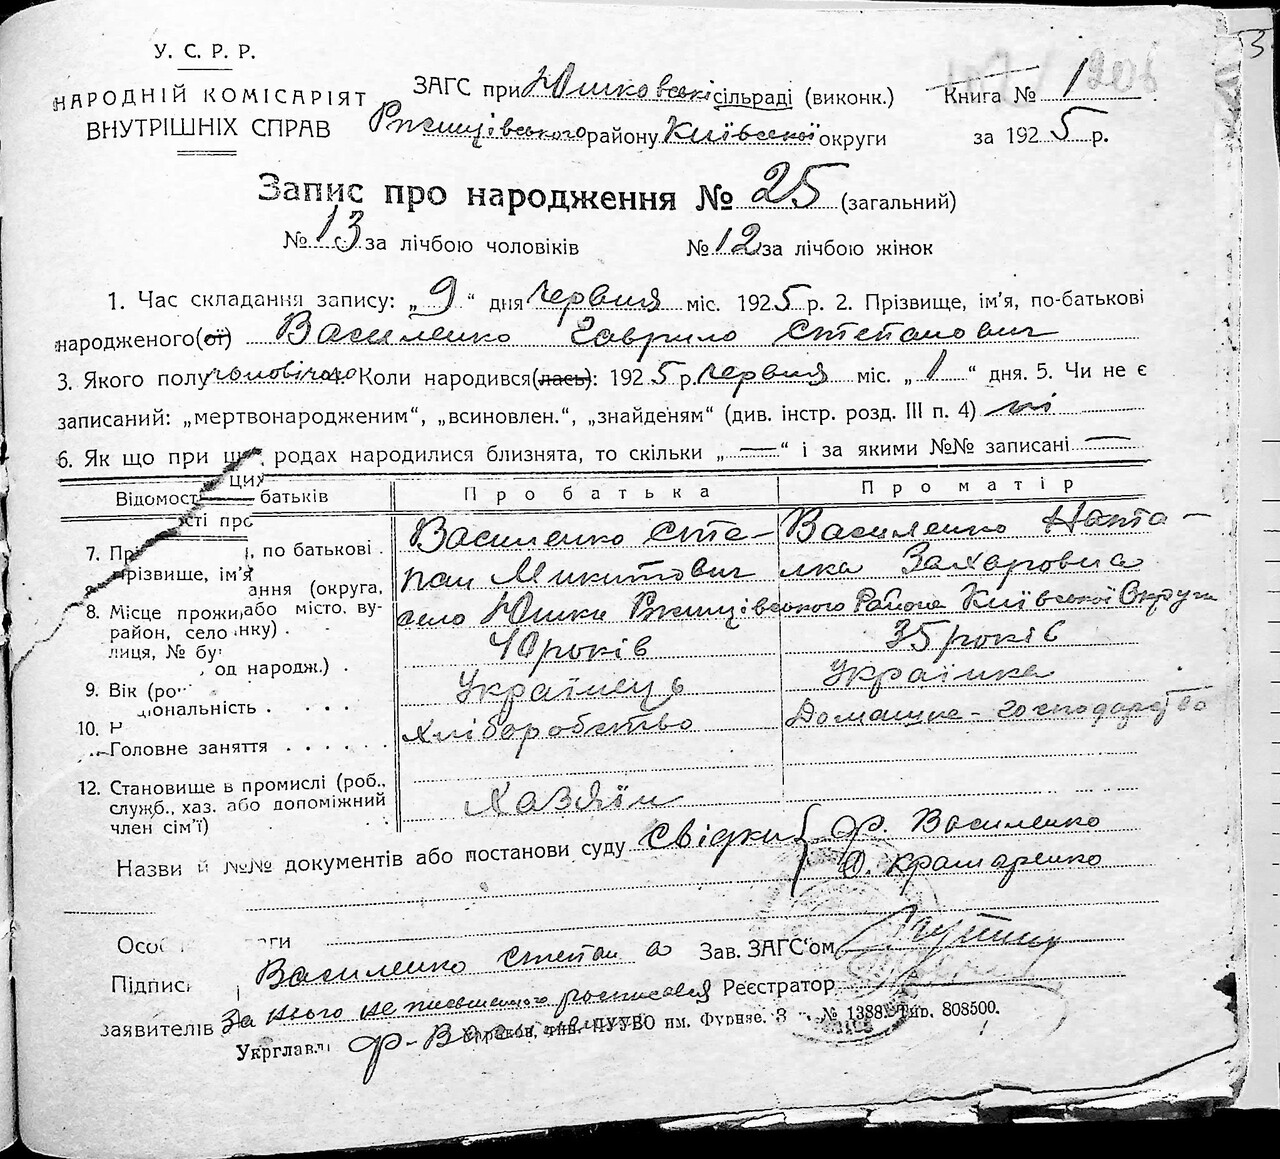 У. С. Р. Р.
НАРОДНІЙ КОМІСАРІЯТ
ВНУТРІШНІХ СПРАВ
ЗАГС при Юшковській сільраді (виконк.)
Ржищівського району Київської округи
Книга № 1
за 1925 р.
Запис про народження № 25 (загальний)
№ 13 за лічбою чоловіків № 12 за лічбою жінок
1. Час складання запису: „ 9 “ дня червня міс. 1925 р. 2. Прізвище, ім’я, по-батькові
народженого(ої) Василенко Гаврило Степанович
3. Якого полу чоловічого Коли народився(лась): 1925 р. червня міс. „ 1 “ дня. 5. Чи не є
записаний: „мертвонародженим“, „всиновлен.“, „знайденям“ (див. інстр. розд. III п. 4) ні
6. Як що при цих родах народилися близнята, то скільки „ — “ і за якими №№ записані —
Відомості про батьків Про батька Про матір
7. Прізвище, ім’я, по батькові . Василенко Сте- Василенко Ната-
пан Микитович лка Захаровна
8. Місце проживання (округа, район, село або місто, вулиця, № будинку) . село Юшки Ржищівського Района Київської Округи
9. Вік (род народж.) . 40 років 35 років
10. Національність . . . . Українець Українка
Головне заняття . . . . . . Хліборобство Домашнє-господарство
12. Становище в промислі (роб.,
служб., хаз. або допоміжний Хазяїн
член сім’ї)
Назви й №№ документів або постанови суду Свідки { Ф. Василенко
О. Крамаренко
Підписи Василенко Степан а Зав. ЗАГС’ом
заявителів За його не письменного росписався Реєстратор
Укрглавл Ф. Василенко Харков, тип. ПУУВО им. Фрунзе. З № 1388. Тир. 808500.